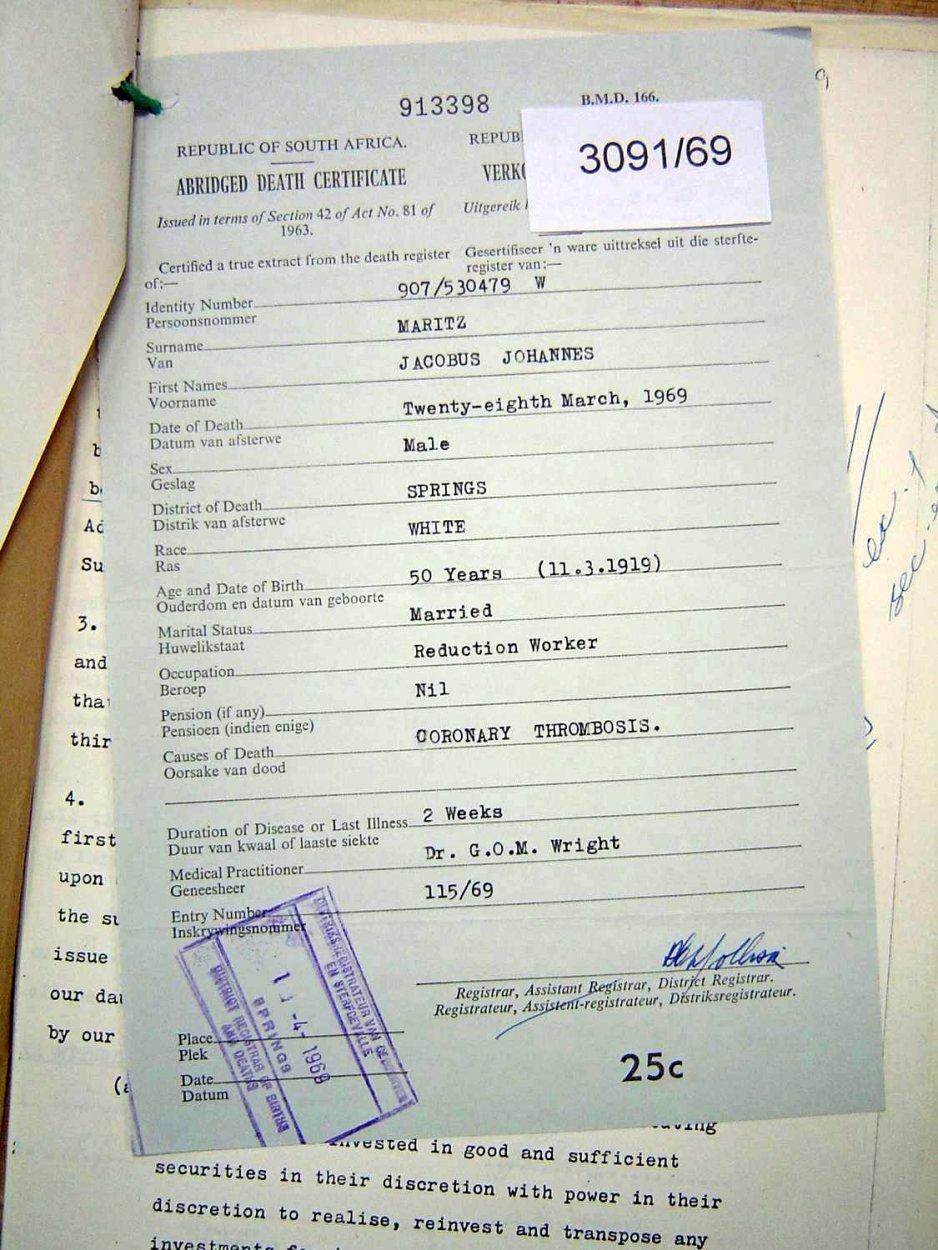 913398
B.M.D. 166.
3091/69
REPUBLIC OF SOUTH AFRICA.
REPUB
ABRIDGED DEATH CERTIFICATE
VERKO
Issued in terms of Section 42 of Act No. 81 of
1963.
Uitgereik
Certified a true extract from the death register
of:—
Gesertifiseer 'n ware uittreksel uit die sterfte-
register van:—
Identity Number 907/530479 W
Persoonsnommer
Surname MARITZ
Van
First Names JACOBUS JOHANNES
Voorname
Date of Death Twenty-eighth March, 1969
Datum van afsterwe
Sex Male
Geslag
District of Death SPRINGS
Distrik van afsterwe
Race WHITE
Ras
Age and Date of Birth 50 Years (11.3.1919)
Ouderdom en datum van geboorte
Marital Status Married
Huwelikstaat
Occupation Reduction Worker
Beroep
Pension (if any) Nil
Pensioen (indien enige)
Causes of Death CORONARY THROMBOSIS.
Oorsake van dood
Duration of Disease or Last Illness 2 Weeks
Duur van kwaal of laaste siekte
Medical Practitioner Dr. G.O.M. Wright
Geneesheer
Entry Number 115/69
Inskrywingsnommer
Registrar, Assistant Registrar, District Registrar.
Registrateur, Assistent-registrateur, Distriksregistrateur.
Place
Plek
Date
Datum
DISTRICT REGISTRAR OF BIRTHS
AND DEATHS
SPRINGS
1 1 -4- 1969
DISTRIKSREGISTRATEUR VAN GEBOORTES
EN STERFGEVALLE
25c
b
Ad
Su
3.
and
tha
thir
4.
first
upon
the su
issue
our dau
by our
(a
invested in good and sufficient
securities in their discretion with power in their
discretion to realise, reinvest and transpose any
investments